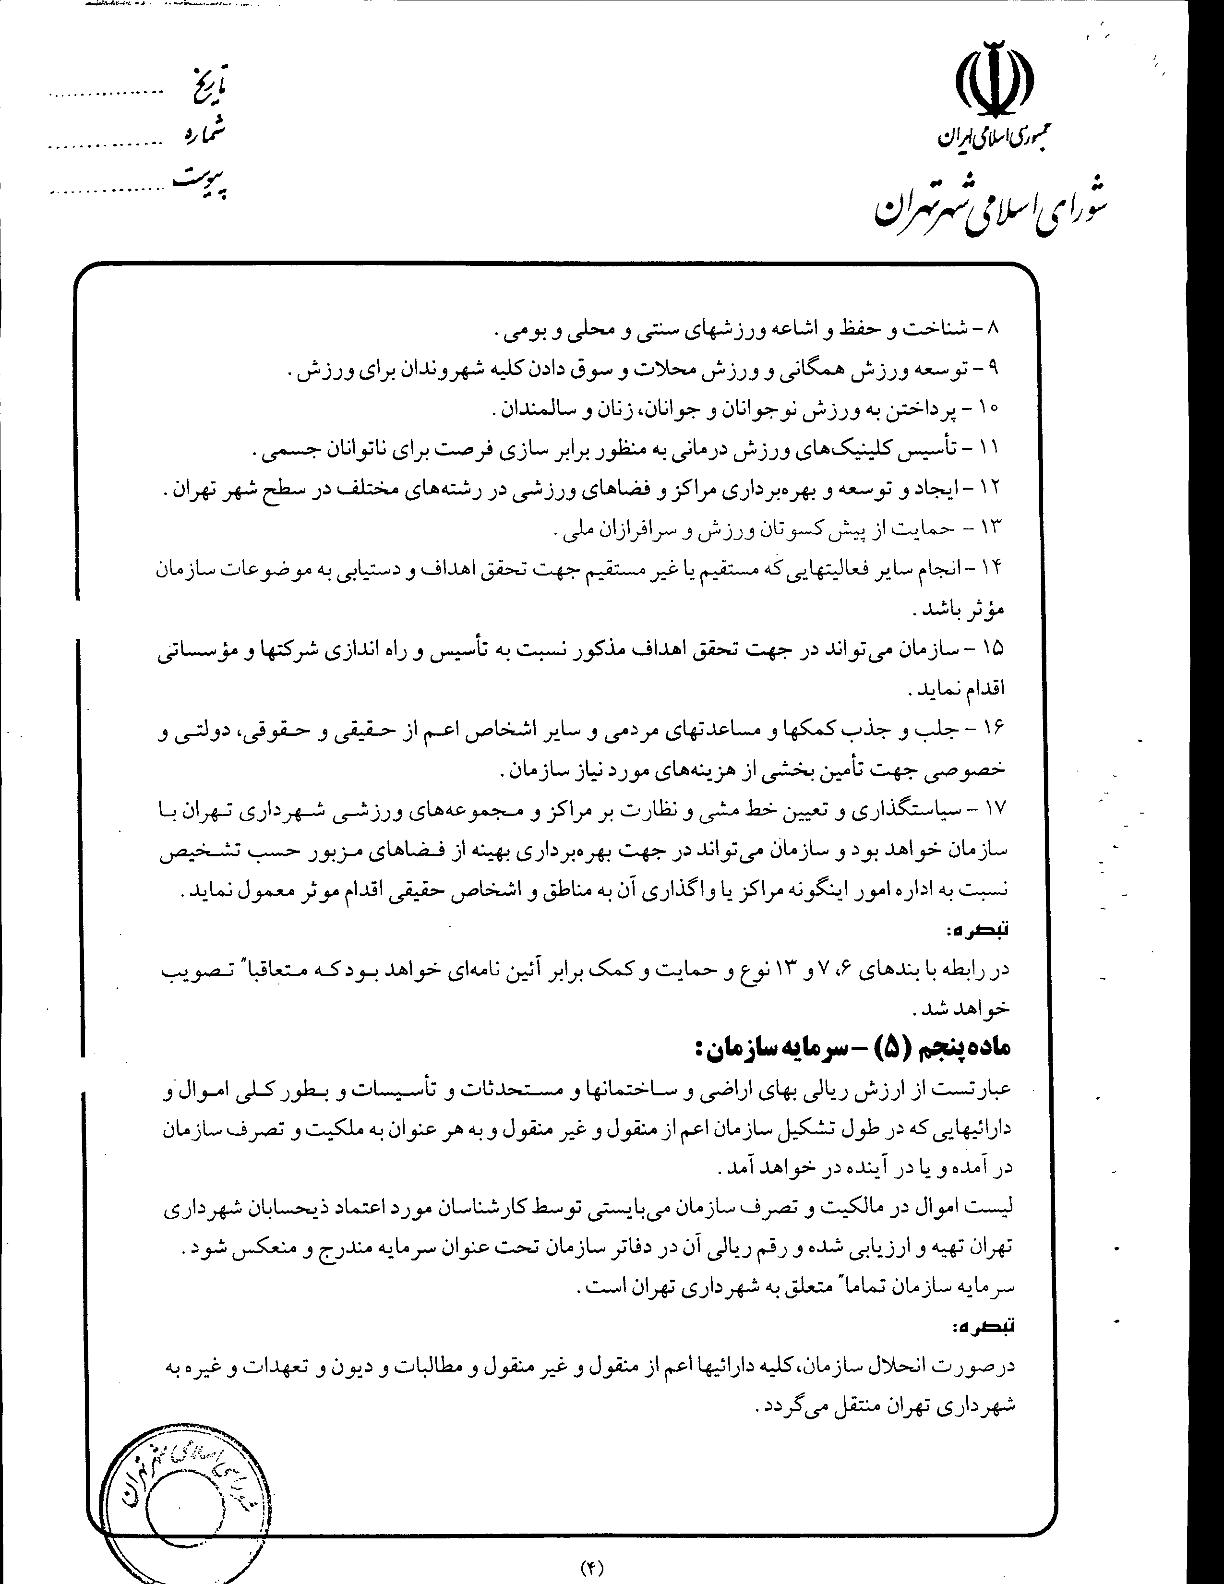 جمهوری اسلامی ایران
شورای اسلامی شهر تهران
تاریخ ................
شماره ................
پیوست ................
۸ - شناخت و حفظ و اشاعه ورزشهای سنتی و محلی و بومی .
۹ - توسعه ورزش همگانی و ورزش محلات و سوق دادن کلیه شهروندان برای ورزش .
۱۰ - پرداختن به ورزش نوجوانان و جوانان، زنان و سالمندان .
۱۱ - تأسیس کلینیک‌های ورزش درمانی به منظور برابر سازی فرصت برای ناتوانان جسمی .
۱۲ - ایجاد و توسعه و بهره‌برداری مراکز و فضاهای ورزشی در رشته‌های مختلف در سطح شهر تهران .
۱۳ - حمایت از پیش کسوتان ورزش و سرافرازان ملی .
۱۴ - انجام سایر فعالیتهایی که مستقیم یا غیر مستقیم جهت تحقق اهداف و دستیابی به موضوعات سازمان
مؤثر باشد .
۱۵ - سازمان می‌تواند در جهت تحقق اهداف مذکور نسبت به تأسیس و راه اندازی شرکتها و مؤسساتی
اقدام نماید .
۱۶ - جلب و جذب کمکها و مساعدتهای مردمی و سایر اشخاص اعم از حقیقی و حقوقی، دولتی و
خصوصی جهت تأمین بخشی از هزینه‌های مورد نیاز سازمان .
۱۷ - سیاستگذاری و تعیین خط مشی و نظارت بر مراکز و مجموعه‌های ورزشی شهرداری تهران با
سازمان خواهد بود و سازمان می‌تواند در جهت بهره‌برداری بهینه از فضاهای مزبور حسب تشخیص
نسبت به اداره امور اینگونه مراکز یا واگذاری آن به مناطق و اشخاص حقیقی اقدام موثر معمول نماید .
تبصره:
در رابطه با بندهای ۶، ۷ و ۱۳ نوع و حمایت و کمک برابر آئین نامه‌ای خواهد بود که متعاقبا" تصویب
خواهد شد .
ماده پنجم (۵) - سرمایه سازمان :
عبارتست از ارزش ریالی بهای اراضی و ساختمانها و مستحدثات و تأسیسات و بطور کلی اموال و
دارائیهایی که در طول تشکیل سازمان اعم از منقول و غیر منقول و به هر عنوان به ملکیت و تصرف سازمان
در آمده و یا در آینده در خواهد آمد .
لیست اموال در مالکیت و تصرف سازمان می‌بایستی توسط کارشناسان مورد اعتماد ذیحسابان شهرداری
تهران تهیه و ارزیابی شده و رقم ریالی آن در دفاتر سازمان تحت عنوان سرمایه مندرج و منعکس شود .
سرمایه سازمان تماما" متعلق به شهرداری تهران است .
تبصره:
در صورت انحلال سازمان، کلیه دارائیها اعم از منقول و غیر منقول و مطالبات و دیون و تعهدات و غیره به
شهرداری تهران منتقل می‌گردد .
شورای اسلامی شهر تهران
(۴)